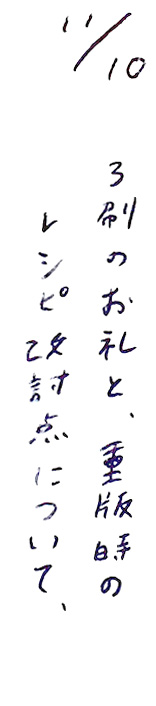 11/10
3刷のお礼と、重版時の
レシピ改討点について、